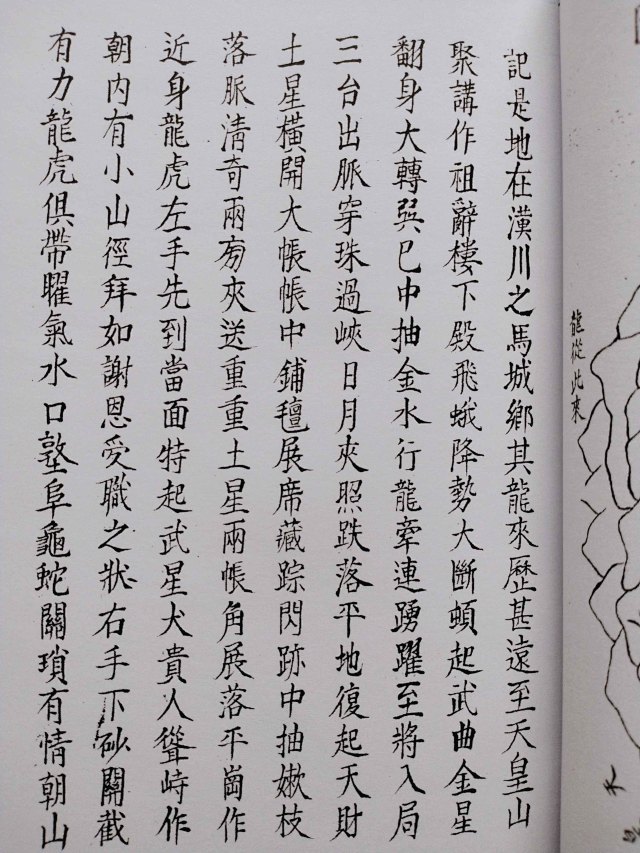 記是地在潢川之馬城鄉其龍來歷甚遠至天皇山
聚講作祖辭樓下殿飛蛾降勢大斷頓起武曲金星
翻身大轉巽巳中抽金水行龍牽連踴躍至將入局
三台出脈穿珠過峽日月夾照跌落平地復起天財
土星橫開大帳帳中鋪氊展席藏踪閃跡中抽嫰枝
落脈清奇兩旁夾送重重土星兩帳角展落平崗作
近身龍虎左手先到當面特起武星犬貴人聳峙作
朝內有小山徑拜如謝恩受職之狀右手下砂關截
有力龍虎俱帶曜氣水口墪阜龜蛇關瑣有情朝山
龍從此來